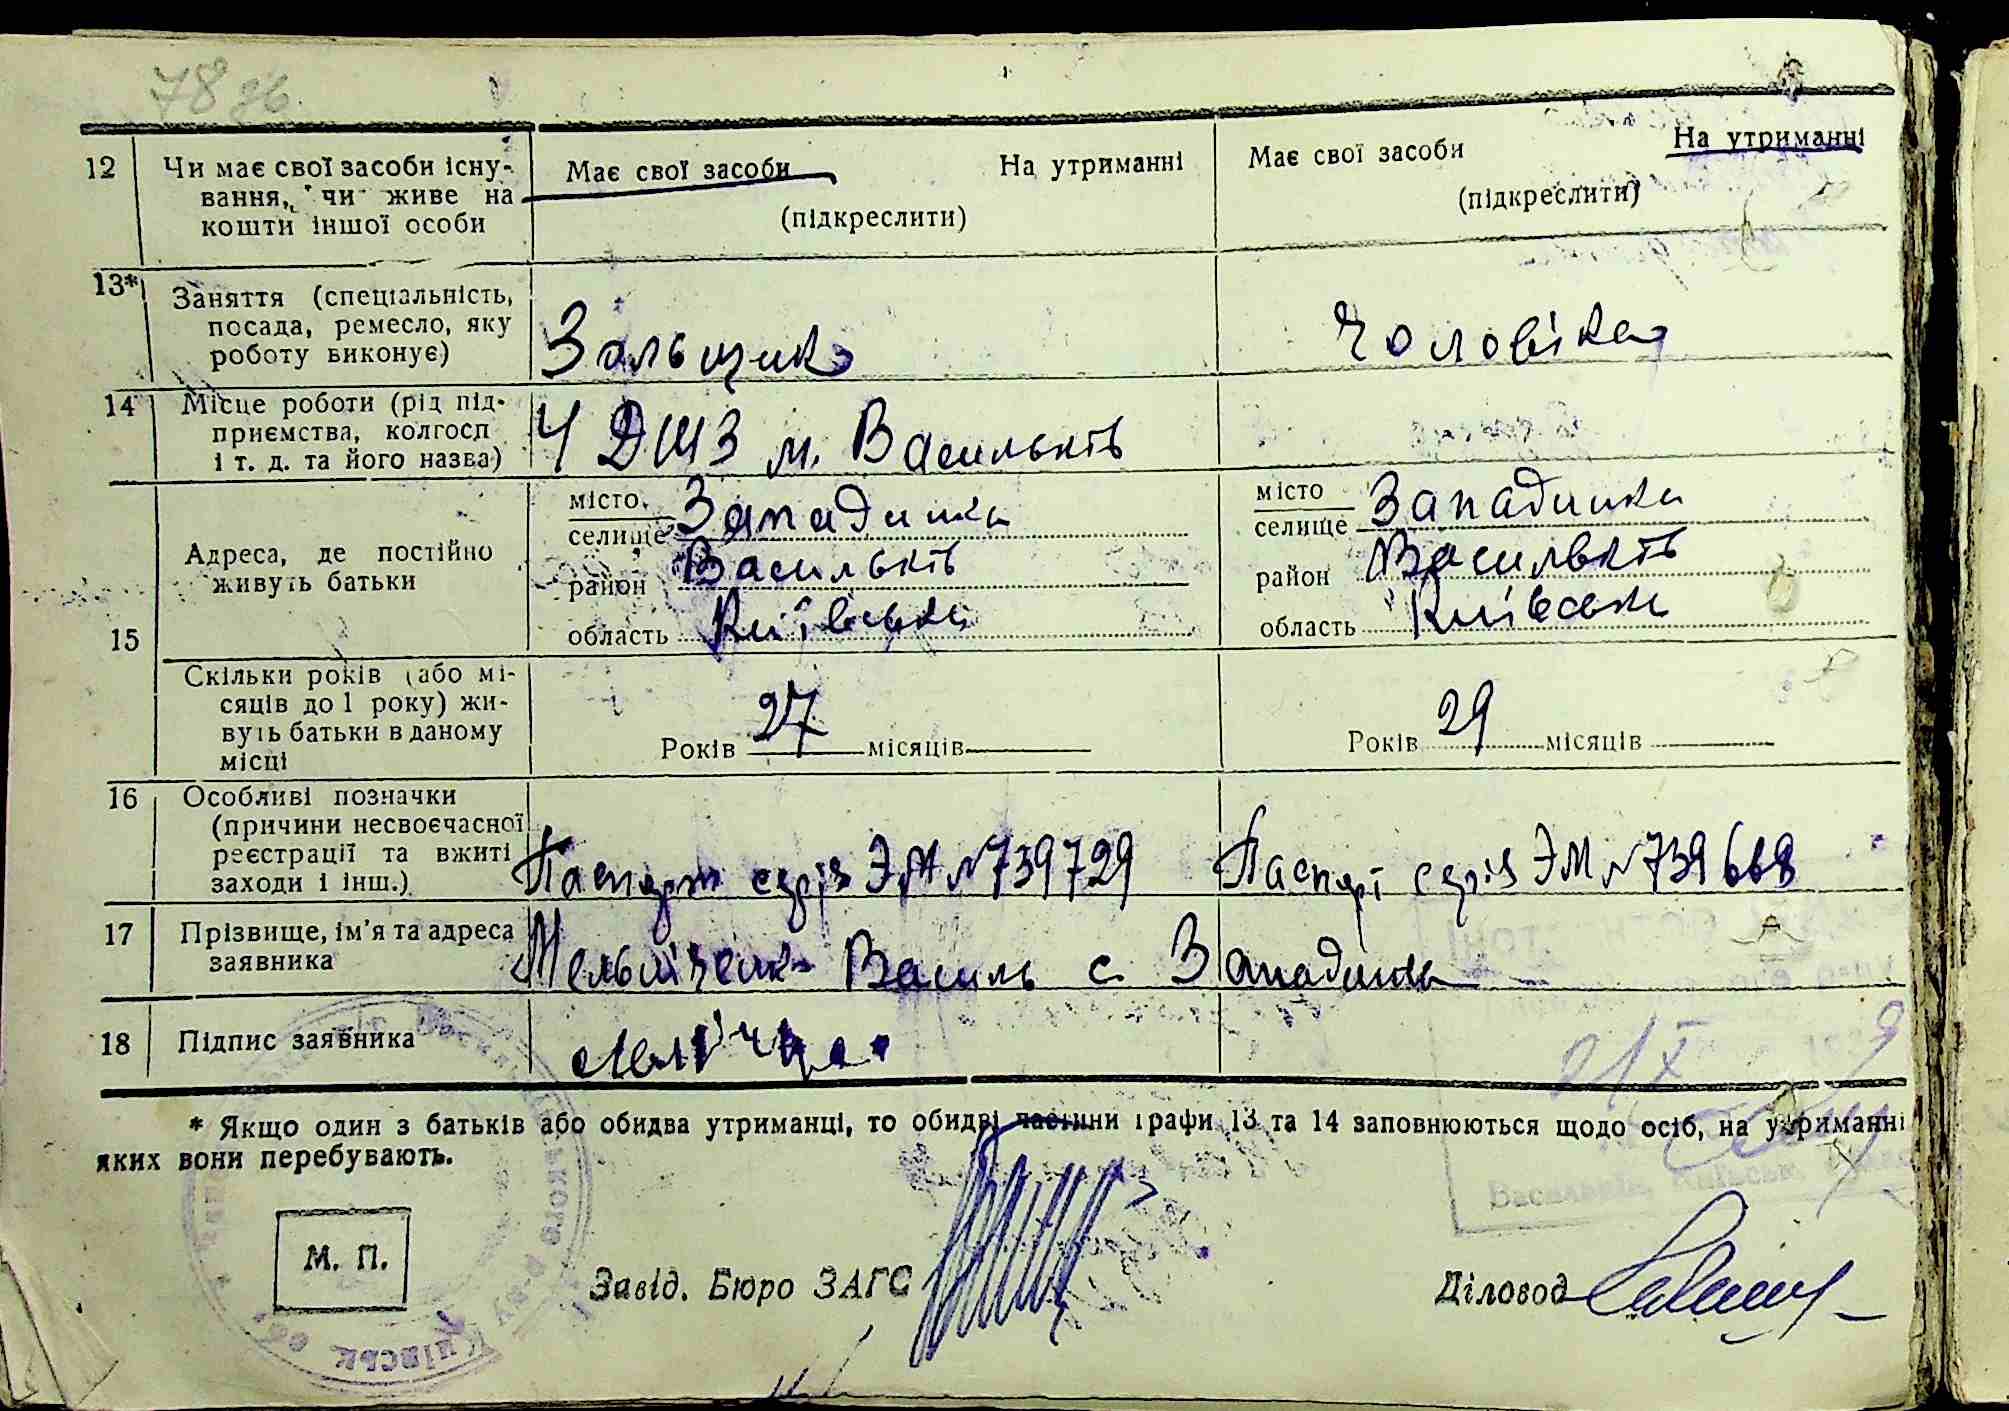 78 зв.
12 Чи має свої засоби існу-
вання, чи живе на
кошти іншої особи
Має свої засоби На утриманні
(підкреслити)
Має свої засоби На утриманні
(підкреслити)
13* Заняття (спеціальність,
посада, ремесло, яку
роботу виконує)
Зольщик
Чоловіка
14 Місце роботи (рід під-
приємства, колгосп
і т. д. та його назва)
4 ДШЗ м. Васильків
15 Адреса, де постійно
живуть батьки
місто
селище Западинка
район Васильків
область Київська
місто
селище Западинка
район Васильків
область Київська
Скільки років (або мі-
сяців до 1 року) жи-
вуть батьки в даному
місці
Років 27 місяців
Років 29 місяців
16 Особливі позначки
(причини несвоєчасної
реєстрації та вжиті
заходи і інш.)
Паспорт серія ЭМ № 739729
Паспорт серія ЭМ № 739668
17 Прізвище, ім'я та адреса
заявника
Мельніченко Василь с. Западинка
18 Підпис заявника
* Якщо один з батьків або обидва утриманці, то обидві частини графи 13 та 14 заповнюються щодо осіб, на утриманні
яких вони перебувають.
М. П.
Завід. Бюро ЗАГС
Діловод